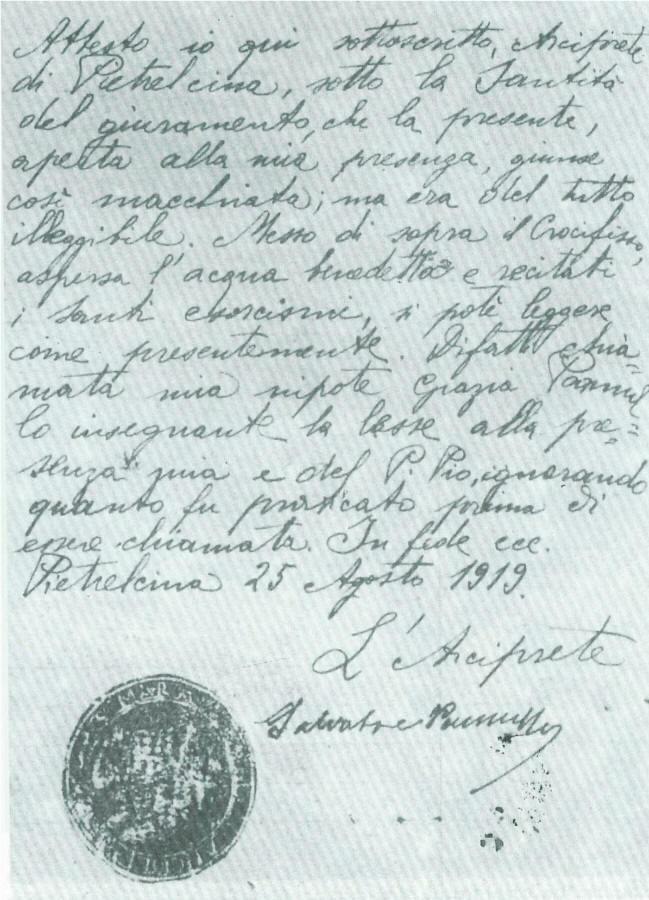 Attesto io qui sottoscritto, Arciprete
di Pietrelcina, sotto la Santità
del giuramento, che la presente,
aperta alla mia presenza, giunse
così macchiata; ma era del tutto
illeggibile. Messo di sopra il Crocifisso,
aspersa l'acqua benedetta e recitati
i santi esorcismi, si potè leggere
come presentemente. Difatti chia=
mata mia nipote Grazia Pannul
lo insegnante la lesse alla pre=
senza mia e del P. Pio, ignorando
quanto fu praticato prima di
essere chiamata. In fede ecc.
Pietrelcina 25 Agosto 1919.
L'Arciprete
Salvatore Pannullo